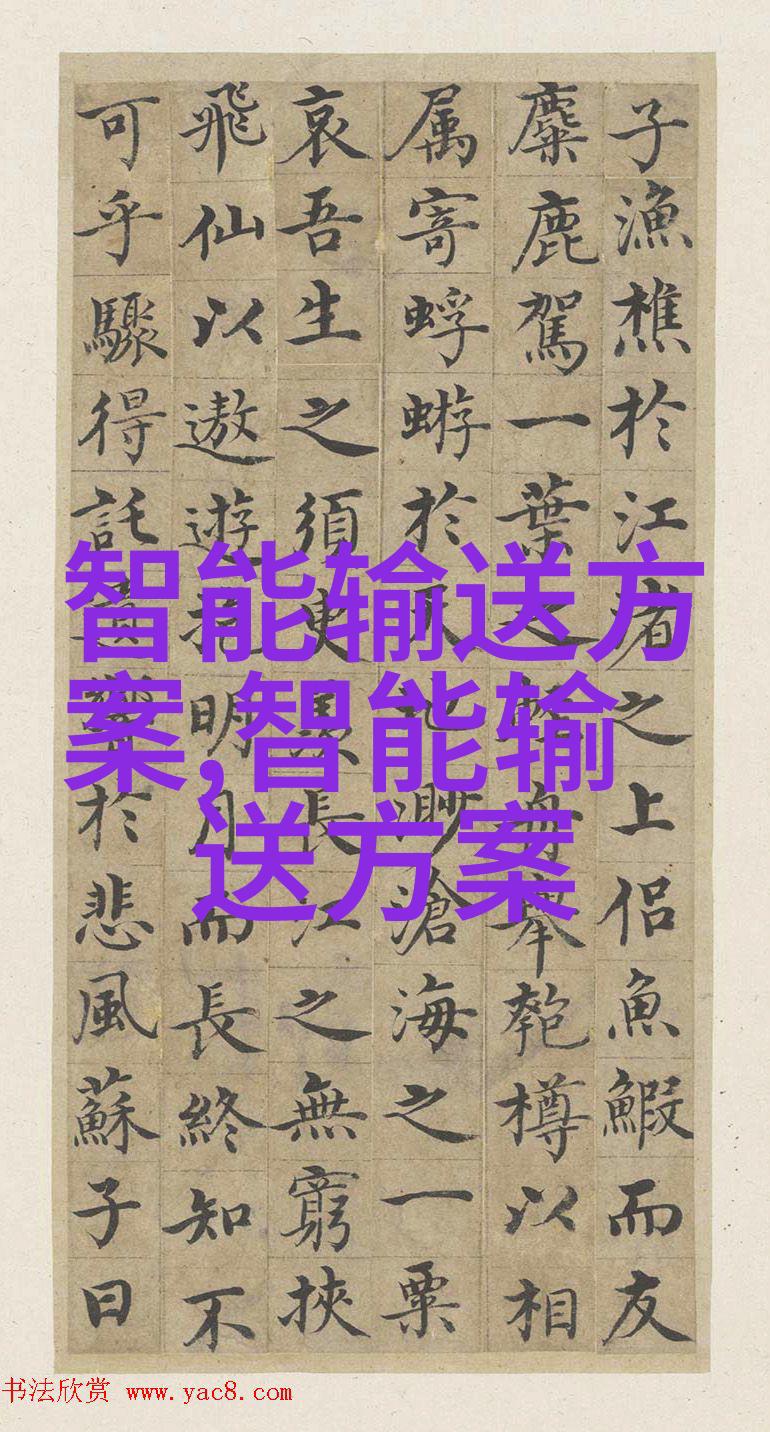 子漁樵於江渚之上侶魚鰕而友
麋鹿駕一葉之輕舟舉匏樽以相
属寄蜉蝣於天地渺滄海之一粟
哀吾生之須臾羨長江之無窮挾
飛仙以遨遊抱明月而長終知不
可乎驟得託遺響於悲風蘇子曰
智能输送方
案,智能输
送方案
书法欣赏 www.yac8.com